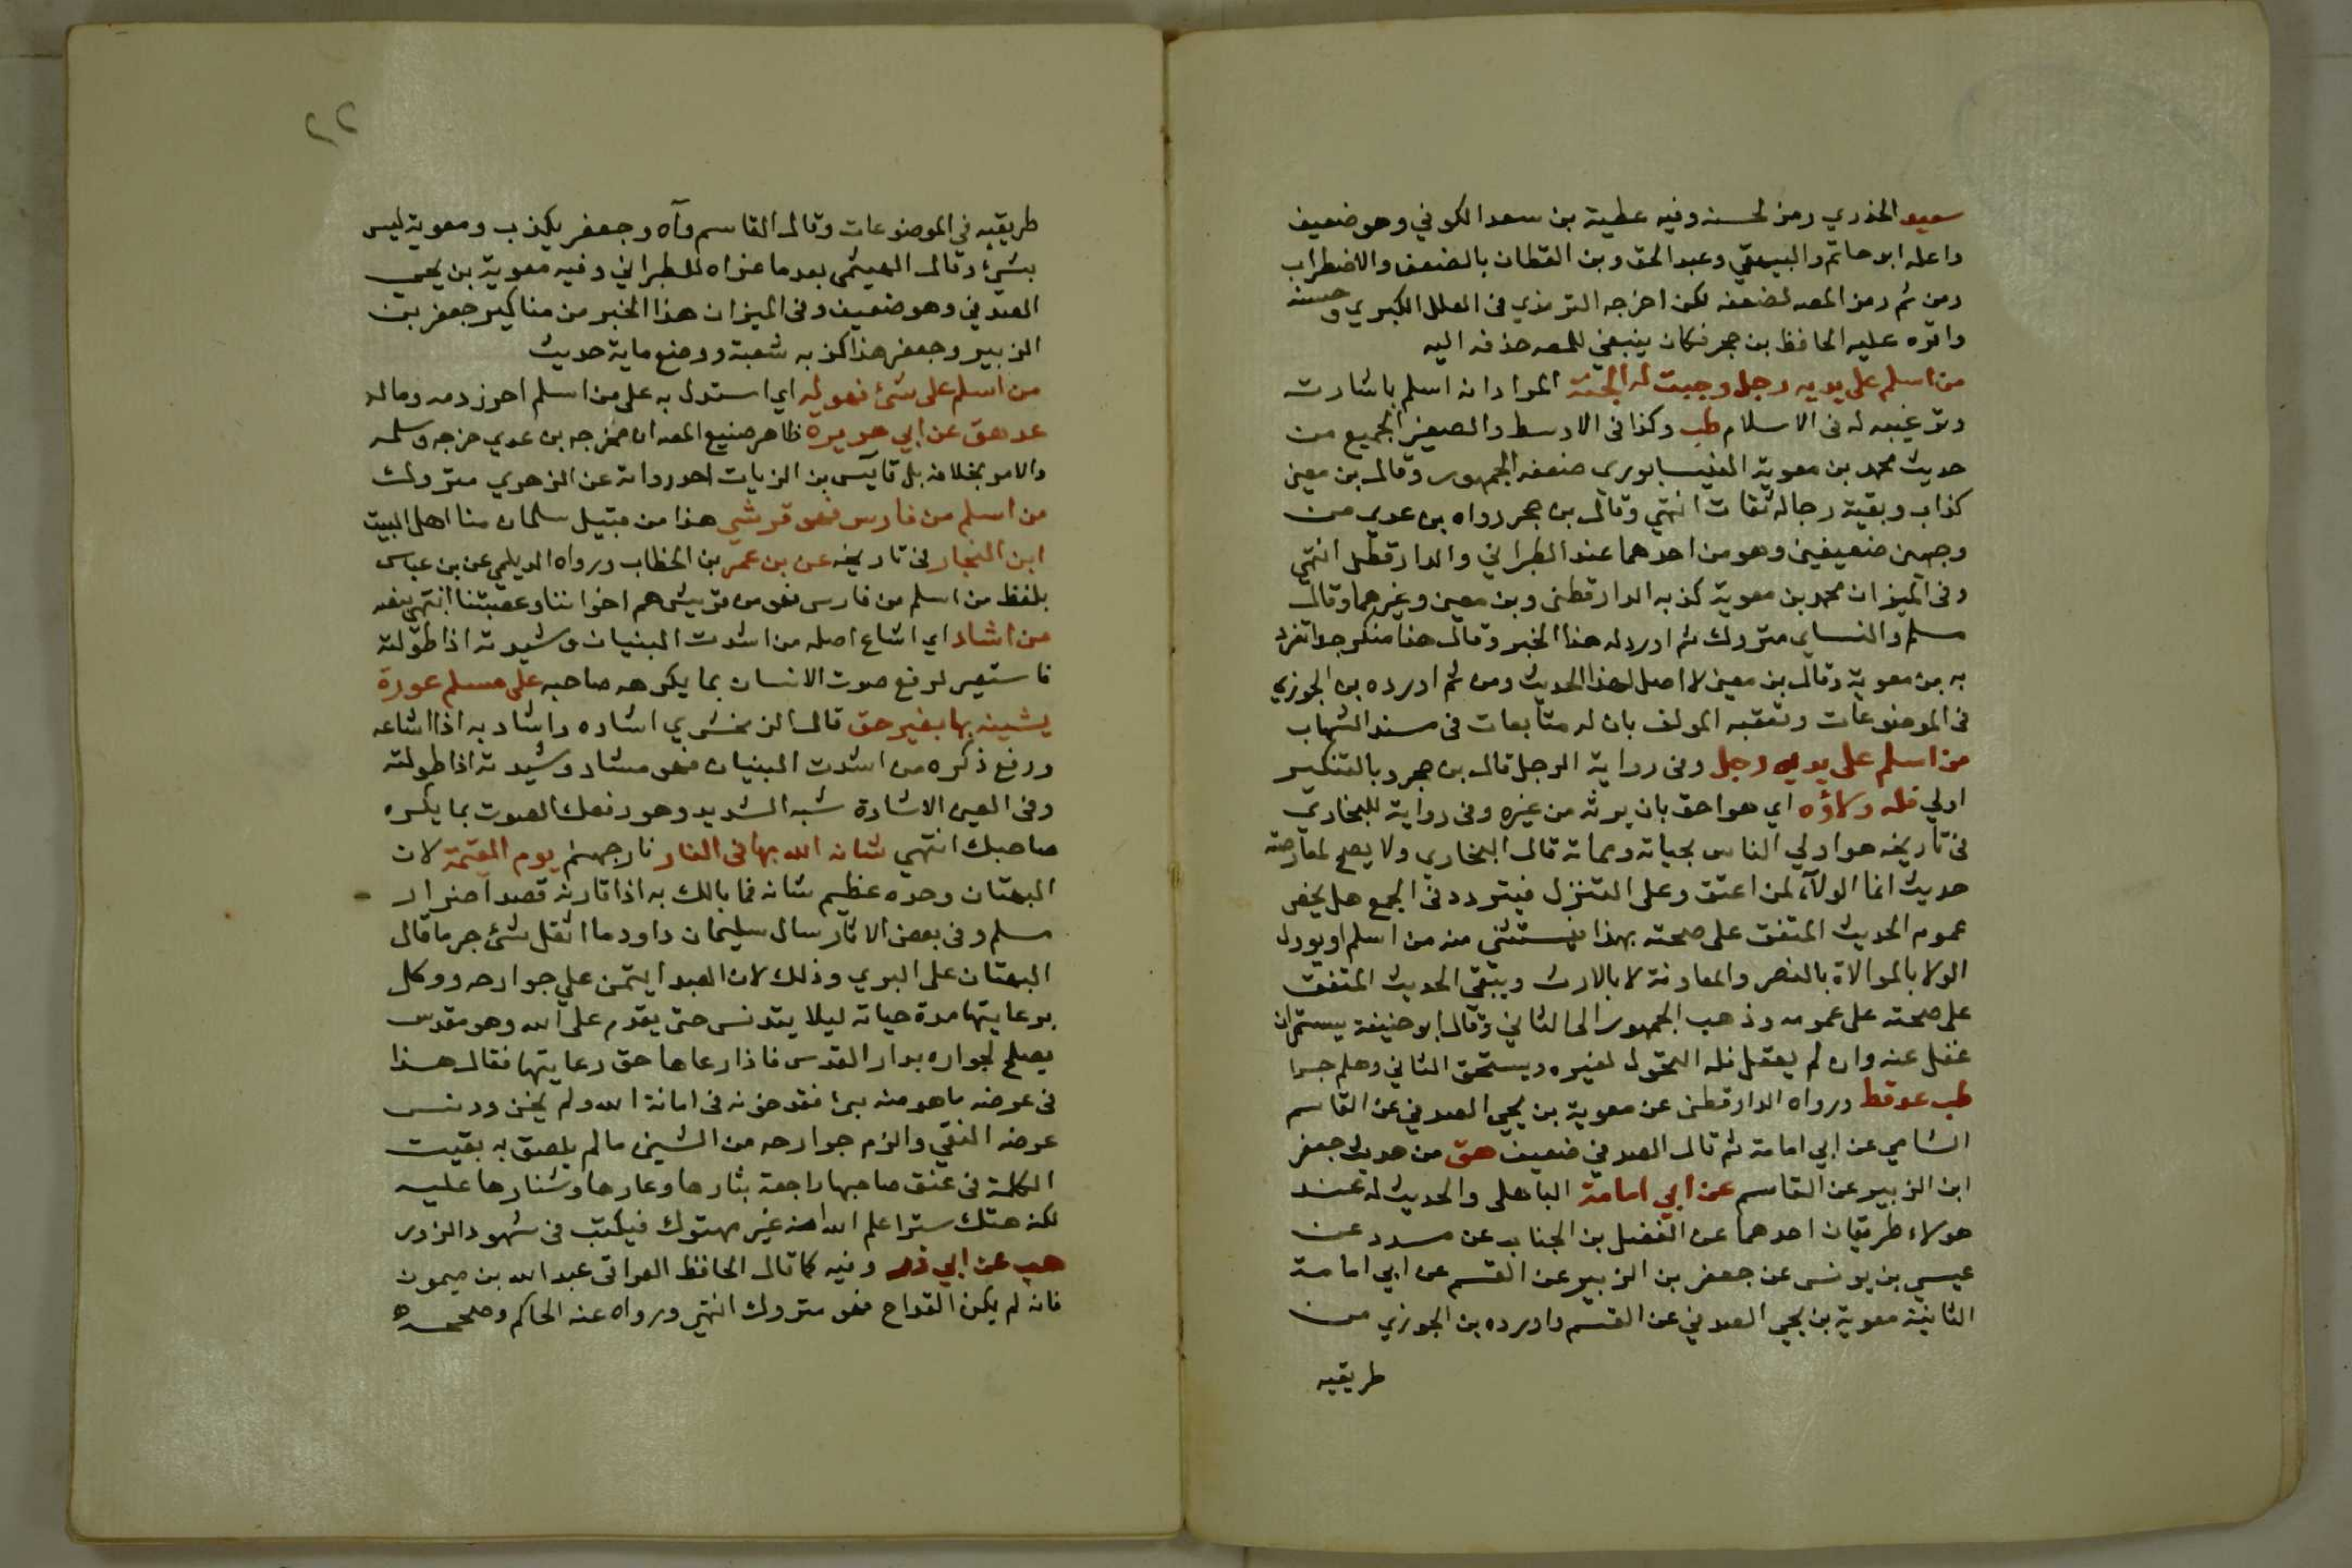 سعيد الخدري رمز لحسنه وفيه عطية بن سعد الكوفي وهو ضعيف
واعله ابو حاتم والبيهقي وعبد الحق وبن القطان بالضعف والاضطراب
ومن ثم رمز المصه لضعفه لكن اخرجه الترمذي فى العلل الكبرى وحسنه
واقره عليه الحافظ بن حجر فكان ينبغي للمصه حذفه اليه
من اسلم على يديه رجل وجبت له الجنة المراد انه اسلم باشارته
وترغيبه له فى الاسلام طب وكذا فى الاوسط والصغير الجميع من
حديث محمد بن معوية النيسابوري ضعفه الجمهور وقال بن معين
كذاب وبقية رجاله ثقات انتهي وقال بن حجر رواه بن عدي من
وجهين ضعيفين وهو من احدهما عند الطبراني والدارقطني انتهي
وفى الميزان محمد بن معوية كذبه الدارقطنى وبن معين وغيرهما وقال
مسلم والنساى متروك ثم اورد له هذا الخبر وقال هذا منكر جدا تفرد
به بن معوية وقال بن معين لا اصل لهذا الحديث ومن ثم اورده بن الجوزي
فى الموضوعات وتعقبه المولف بان له متابعات فى مسند الشهاب
من اسلم على يديه رجل وفى رواية الرجل قال بن حجر وبالتنكير
اولي فله ولاؤه اي هو احق بان يرثه من غيره وفى رواية للبخاري
فى تاريخه هو اولي الناس بحياته ومماته قال البخاري ولا يصح لمعارضته
حديث انما الولآء لمن اعتق وعلى التنزل فيتردد فى الجمع هل يخص
عموم الحديث المتفق على صحته بهذا فيستثني منه من اسلم او يوول
الولا بالموالاة بالنصر والمعاونة لا بالارث ويبقى الحديث المتفق
على صحته على عمومه وذهب الجمهور الى الثاني وقال ابو حنيفة يستمر ان
عقل عنه وان لم يعقل فله التحول لغيره ويستحق الثاني وهلم جرا
طب عد قط ورواه الدارقطنى عن معوية بن يحيي الصدفي عن القاسم
الشامي عن ابي امامة ثم قال الصدفي ضعيف هق من حديث جعفر
ابن الزبير عن القاسم عن ابي امامة الباهلى والحديث له عند
هولاء طريقان احدهما عن الفضل بن الحباب عن مسدد عن
عيسي بن يونس عن جعفر بن الزبير عن القسم عن ابي امامة
الثانية معوية بن يحيى الصدفي عن القسم واورده بن الجوزي من
طريقيه
٢٢
طريقيه فى الموضوعات وقال القاسم وآه وجعفر يكذب ومعوية ليس
بشيء وقال الهيثمي بعد ما عزاه للطبراني وفيه معوية بن يحيى
الصدفي وهو ضعيف وفى الميزان هذا الخبر من مناكير جعفر بن
الزبير وجعفر هذا كذبه شعبة ووضع ماية حديث
من اسلم على شئ فهو له اي استدل به على من اسلم احرز دمه وماله
عد هق عن ابي هريرة ظاهر صنيع المصه ان مخرجه بن عدي خرجه وسلمه
والامر بخلافه بل قال يس بن الزيات احد رواته عن الزهري متروك
من اسلم من فارس فهو قرشي هذا من قبيل سلمان منا اهل البيت
ابن النجار فى تاريخه عن بن عمر بن الخطاب ورواه الديلمي عن بن عباس
بلفظ من اسلم من فارس فهو من قريش هم اخواننا وعصبتنا انتهي بنصه
من اشاد اي اشاع اصله من اشدت البنيان وشيدته اذا طولته
فاستعير لرفع صوت الانسان بما يكرهه صاحبه على مسلم عورة
يشينه بها بغير حق قال الزمخشري اشاده واشاد به اذا اشاعه
ورفع ذكره من اشدت البنيان فهو مشاد وشيدته اذا طولته
وفى العين الاشادة شبه التشديد وهو رفعك الصوت بما يكره
صاحبك انتهي شانه الله بها فى النار نار جهنم يوم القيمة لان
البهتان وحده عظيم شانه فما بالك به اذا قارنه قصد اضرار
مسلم وفى بعض الاثار سال سليمان داود ما اثقل شئ جرما قال
البهتان على البري وذلك لان العبد ايتمن على جوارحه ووكل
برعايتها مدة حياته ليلا يتدنس حتى يقدم على الله وهو مقدس
يصلح لجواره بدار القدس فاذا رعاها حق رعايتها فقال هذا
فى عرضه ما هو منه برئ فقد خونه فى امانة الله ولم يخن ودنس
عرضه النقي والزم جوارحه من الشين مالم يلصق به بقيت
الكلمة فى عنق صاحبها راجعة بثارها وعارها وشنارها عليه
لكنه هتك سترا علم الله انه غير مهتوك فيكتب فى شهود الزور
هب عن ابي ذر وفيه كما قال الحافظ العراقى عبد الله بن ميمون
فانه لم يكن القداح فهو متروك انتهي ورواه عنه الحاكم وصححه